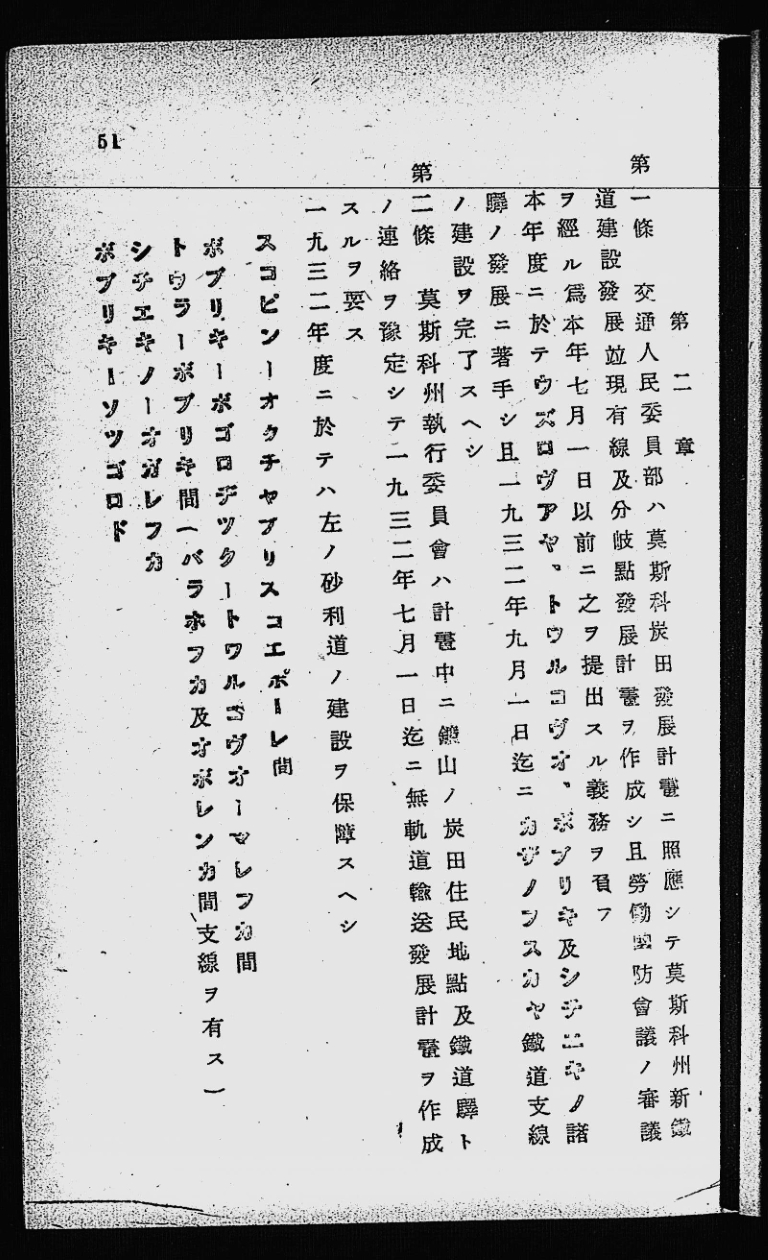 51
第二章
第一條　交通人民委員部ハ莫斯科炭田發展計畫ニ照應シテ莫斯科州新鐵
道建設發展竝現有線及分岐點發展計畫ヲ作成シ且勞働國防會議ノ審議
ヲ經ル爲本年七月一日以前ニ之ヲ提出スル義務ヲ負フ
本年度ニ於テウズロヴアヤ、トウルコヴオ、ボブリキ及シチエキノ諸
驛ノ發展ニ著手シ且一九三二年九月一日迄ニカザノフスカヤ鐵道支線
ノ建設ヲ完了スヘシ
第二條　莫斯科州執行委員會ハ計畫中ニ鑛山ノ炭田住民地點及鐵道驛ト
ノ連絡ヲ豫定シテ一九三二年七月一日迄ニ無軌道輸送發展計畫ヲ作成
スルヲ要ス
一九三二年度ニ於テハ左ノ砂利道ノ建設ヲ保障スヘシ
スコピンーオクチヤブリスコエポーレ間
ボブリキーボゴロヂツクートワルコヴオーマレフカ間
トウラーボブリキ間（バラホフカ及オボレンカ間支線ヲ有ス）
シチエキノーオガレフカ
ボブリキーソツゴロド